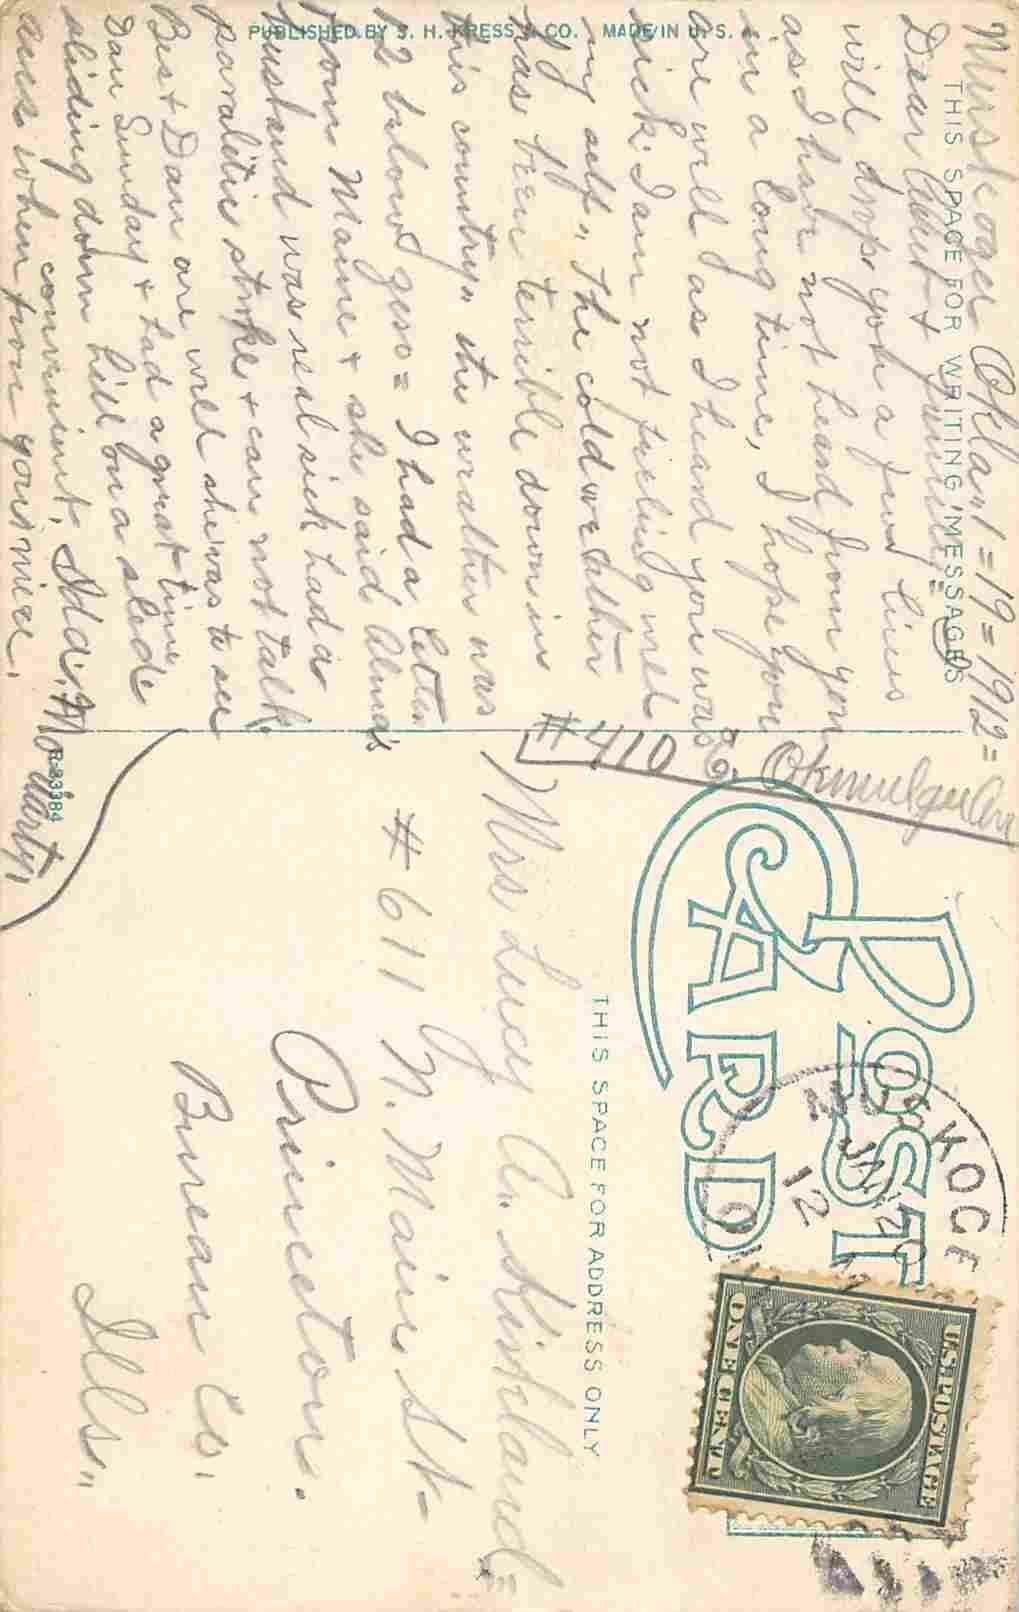 PUBLISHED BY S. H. KRESS & CO. MADE IN U. S. A.
THIS SPACE FOR WRITING MESSAGES
Muskogee Okla, 1=19=1912=
Dear Aunt & family=
will drop you a few lines
as I have not heard from you
in a long time, I hope you
are well as I heard you was
sick. I am not feeling well
my self,, The cold weather
has been terrible down in
this country,, the weather was
12 below zero= I had a letter
from Mame & she said Alma's
husband was real sick had a
paralitic stroke & can not talk
Bes & Dan are well she was to see
Dan Sunday & had a great time
sliding down hill on a sled.
convenient, Ida, Moriarty,
ans when your niece.
#410 E. Okmulgee Ave
R-33384
POST CARD
THIS SPACE FOR ADDRESS ONLY
MUSKOGEE
JAN 20
12
U.S. POSTAGE
ONE CENT
Mrs. Lucy A. Kirkland=
#611 N. Main St-
Princeton.
Bureau Co.
Ills,,